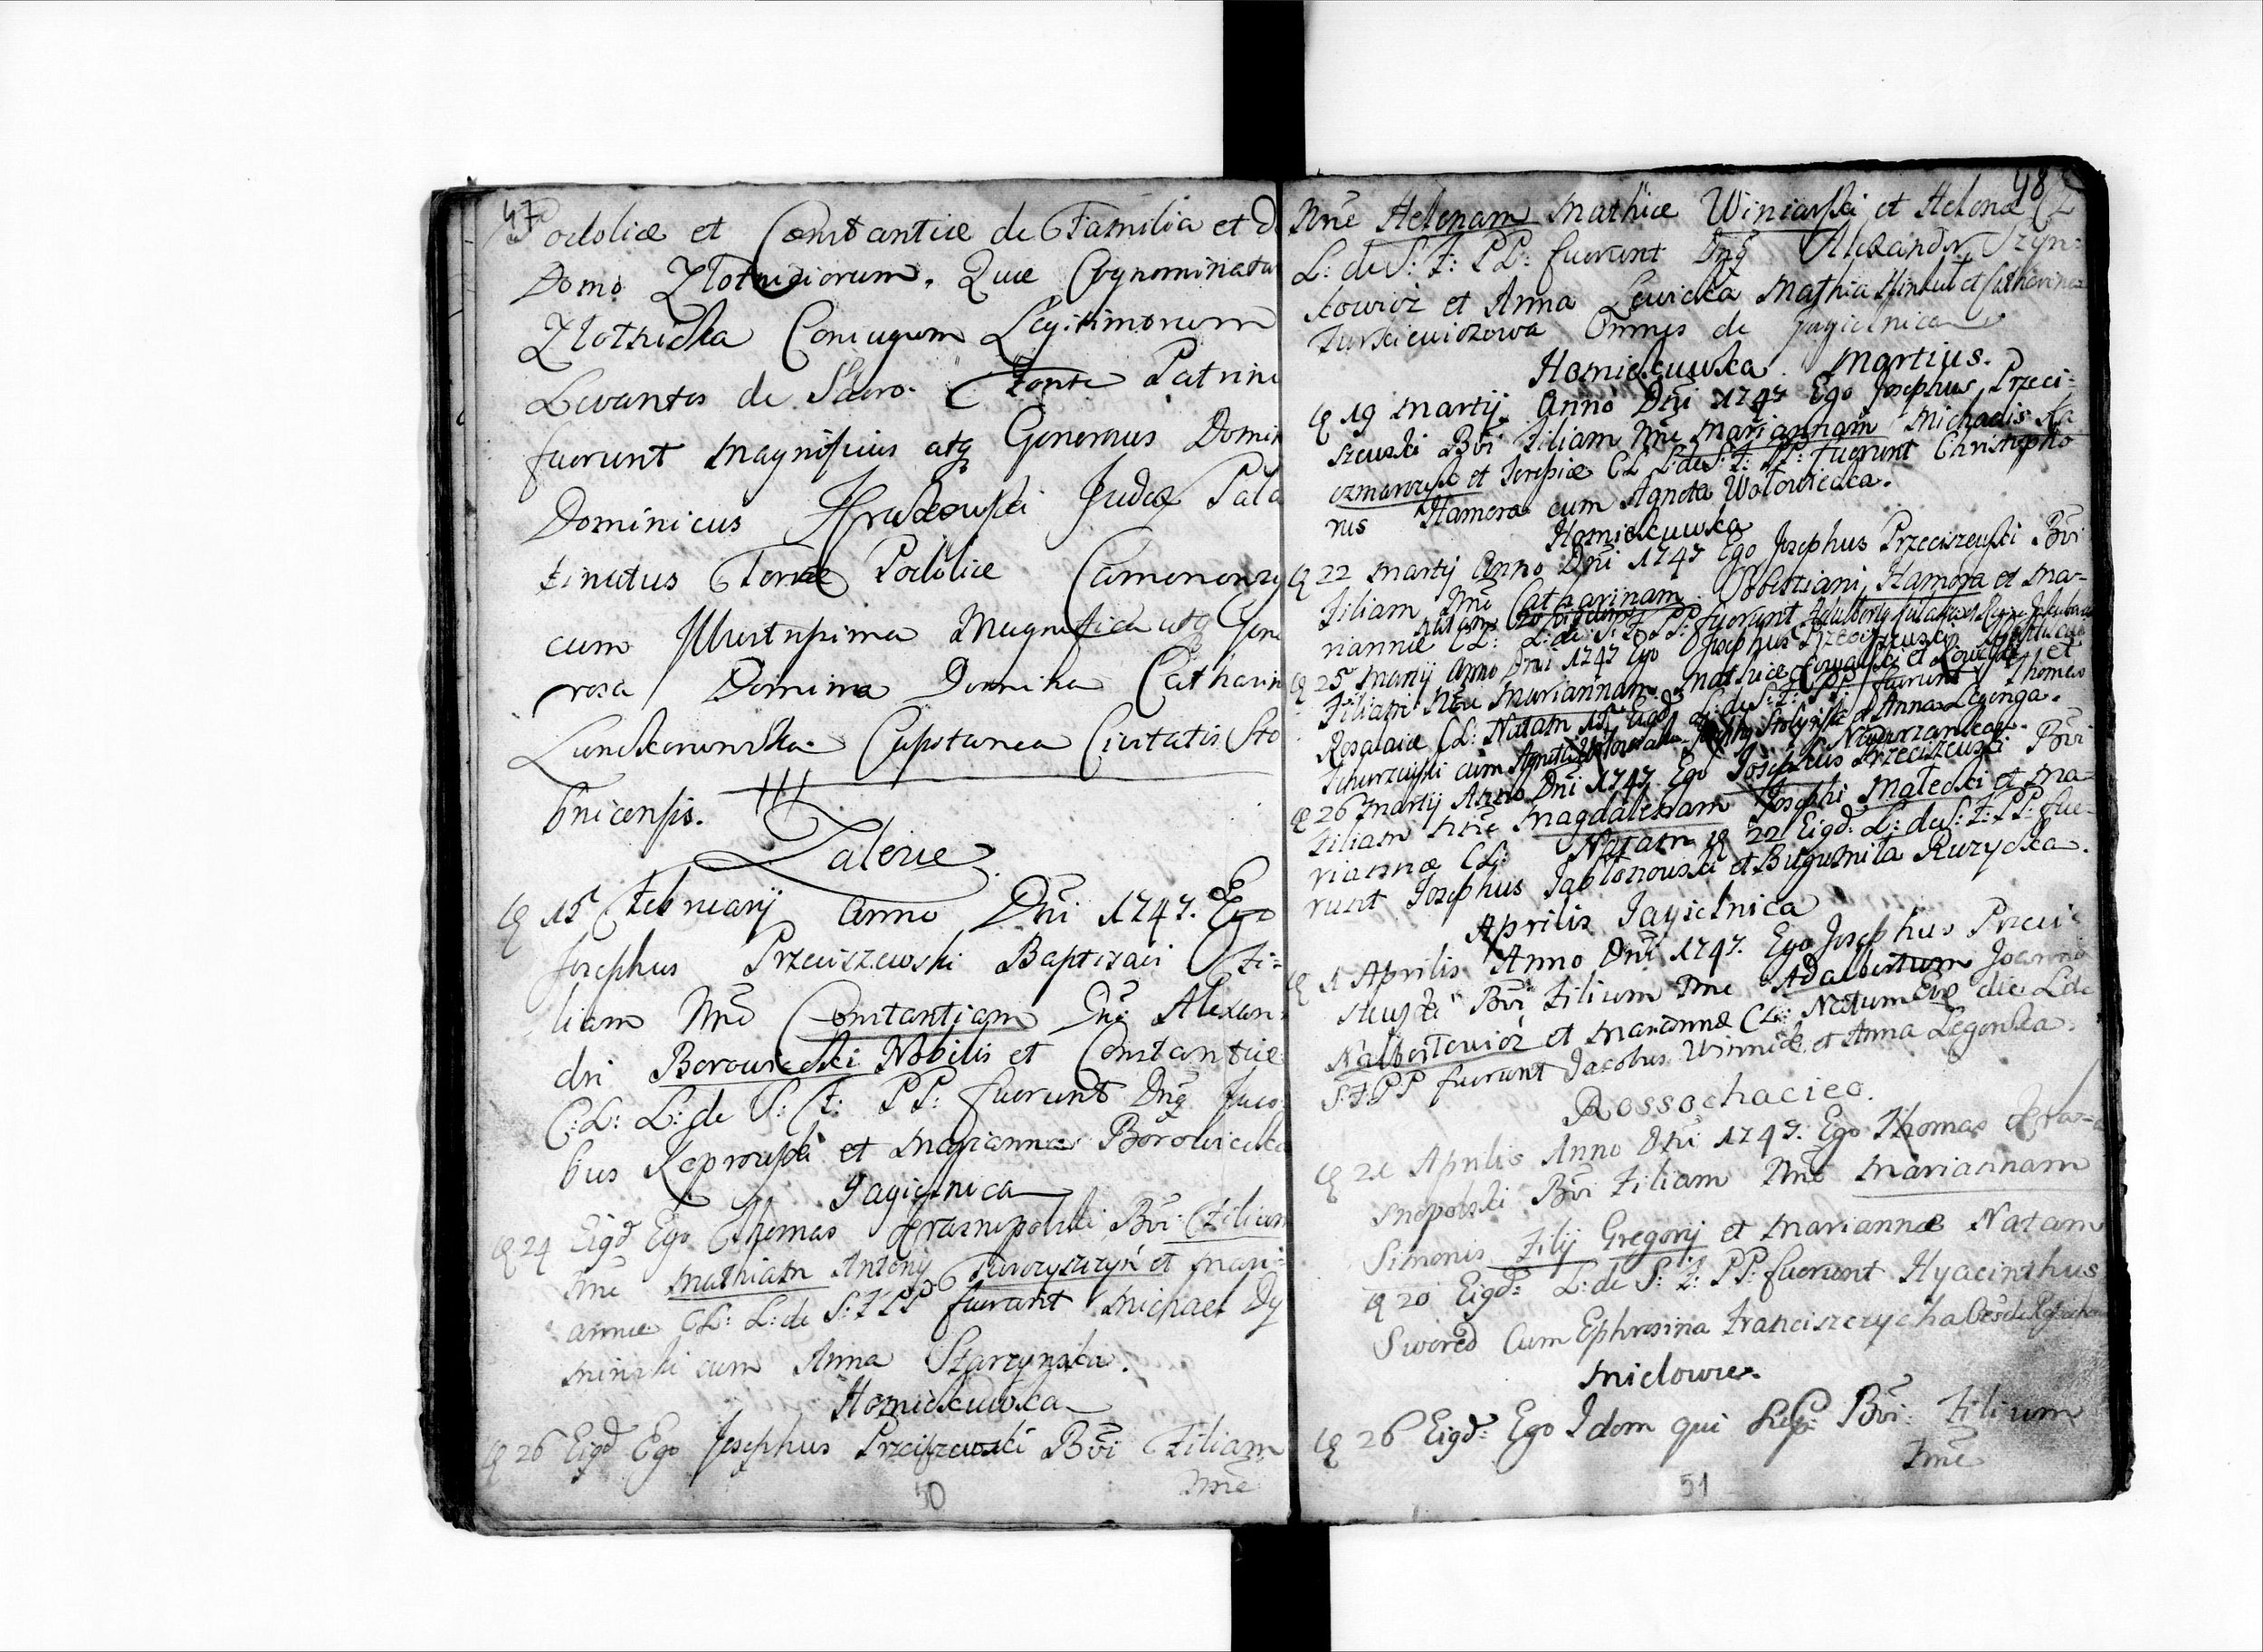 47
Podoliæ et Constantiæ de Familia et D
Domo Złotniciorum. Quæ Cognominatur
Złotnicka Coniugum Legitimorum
Levantes de Sacro Fonte Patrini
fuerunt Magnificus atq Generosus Domin
Dominicus Judex Pala
tinatus Terræ Podoliæ Camenensis
cum Illustrissima Magnifica atq Gene
rosa Domina Domina Catharin
Lanckorunska Capitanea Civitatis Sto
bnicensis.
Zalesie
15 Februarij Anno Dni 1747. Ego
Josephus Przeciszewski Baptizavi Fi=
liam Nne Constantiam Dni Alexan
dri Borowiecki Nobilis et Constantiæ
C: L: L: de S: F: PP: fuerunt Dnq Jaco
bus et Marianna Borowiecka
Jagielnica
24 Eigd Ego Thomas Krasnopolski Bvi: Filium
Nne Mathiam Antonij et Mari=
annæ CL: L: de S: F PP fuerunt Michael Dy
minski cum Anna Starzynska.
Homiekuwka
26 Eigd Ego Josephus Przeciszewski Bvi Filiam
Nne
50
48
Nne Helenam Mathiæ Winiarski et Helenæ C
L: de S: F: PP: fuerunt Dnq Alexander Szyn=
kowicz et Anna Lewicka Mathia et Catharina
Turkiewiczowa Omnes de Jagielnica
Homiekuwka Martius.
19 Martij Anno Dni 1747 Ego Josephus Przeci=
szewski Bvi Filiam Nne Mariannam Michaelis Ka
czmarczyk et CL L: de S: F: PP: fuerunt Christopho
rus Hamera cum Agneta Wolowiecka.
Homiekuwka
22 Martij Anno Dni 1747 Ego Josephus Przeciszewski Bvi
Filiam Nne Catharinam Hamera et Ma-
riannæ CL: L: de S: F: PP fuerunt
25 Martij Anno Dni 1747 Ego Josephus Przeciszewski
Filiam Nne Mariannam Mathiæ et
Rosaliæ CL: Natam 15 Eigd L: de S: F: PP: fuerunt Thomas
cum et Anna Legenga.
26 Martij Anno Dni 1747 Ego Josephus Przeciszewski Bvi
Filiam Nne Magdalenam Josephi Malecki et Ma-
riannæ CL: Natam 22 Eigd: L: de S: F: PP: fue-
runt Josephus Jablonowski et Bugumila Ruzycka.
Aprilis Jagielnica
1 Aprilis Anno Dni 1747. Ego Josephus Przeci
szewski Bvi Filium Nne Adalbertum Joannis
Nalbertowicz et Mariannæ CL: Natum die L: de
S: F: PP fuerunt Jacobus Winnick et Anna Legenska.
Rossochaciec.
21 Aprilis Anno Dni 1747. Ego Thomas Kras-
snopolski Bvi Filiam Nne Mariannam
Simonis Filij Gregorij et Mariannæ Natam
20 Eigd: L: de S: F: PP: fuerunt Hyacinthus
Swored Cum Ephrosina Franciszczycha
Milowie.
26 Eigd: Ego Idem qui Bvi: Filium
Nne
51